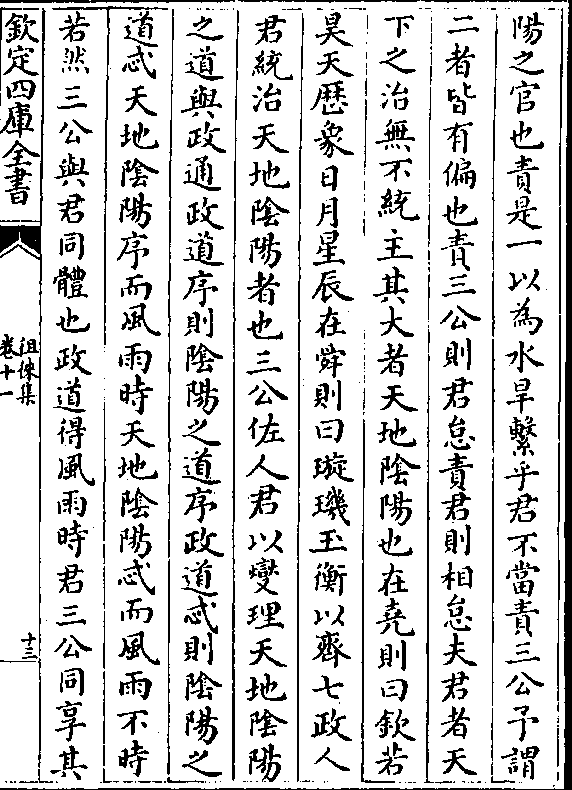 陽之官也責是一以為水旱繫乎君不當責三公予謂
二者皆有偏也責三公則君怠責君則相怠夫君者天
下之治無不統主其大者天地陰陽也在堯則曰欽若
昊天厯象日月星辰在舜則曰璇璣玉衡以齊七政人
君統治天地陰陽者也三公佐人君以燮理天地陰陽
之道與政通政道序則陰陽之道序政道忒則陰陽之
道忒天地陰陽序而風雨時天地陰陽忒而風雨不時
若然三公與君同體也政道得風雨時君三公同享其
欽定四庫全書
徂徠集
卷十一
十三